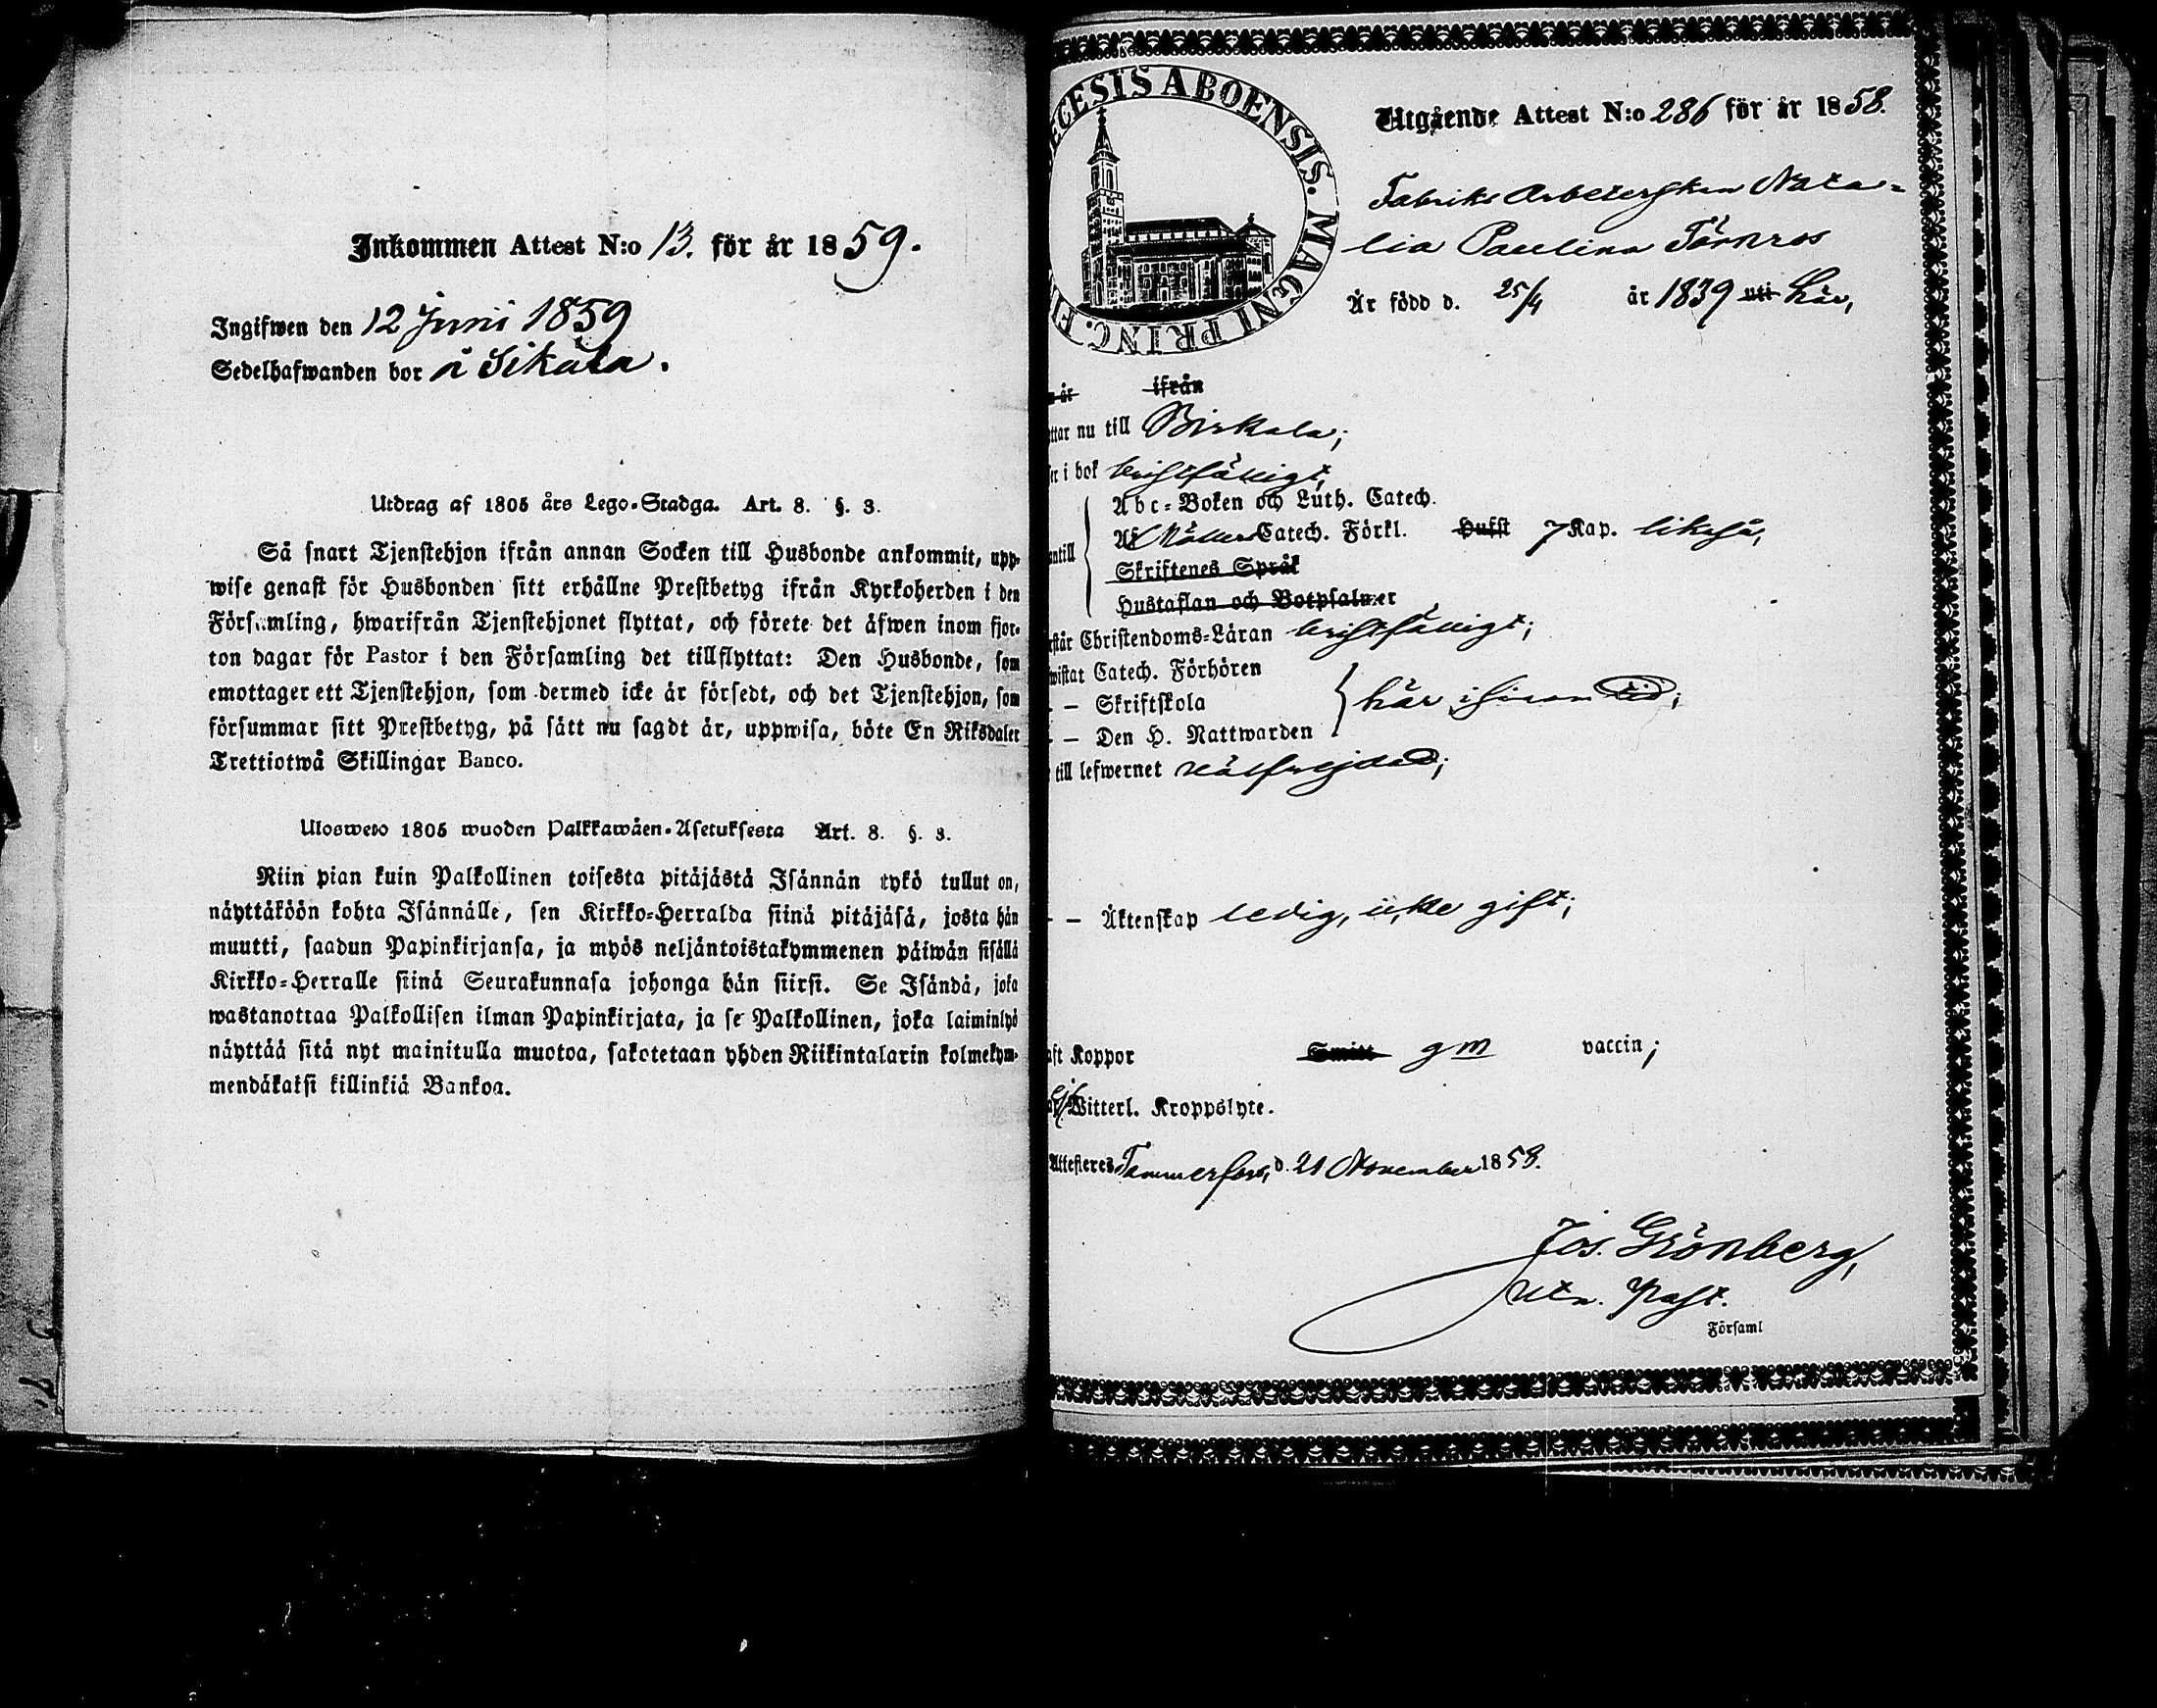 Inkommen Attest N:o 13. för år 1859.
Ingifwen den 12 Juni 1859
Sedelhafwanden bor å Sikåla.
Utdrag af 1805 års Lego-Stadga. Art. 8. §. 3.
Så snart Tjenstehjon ifrån annan Socken till Husbonde ankommit, upp-
wise genast för Husbonden sitt erhållne Prestbetyg ifrån Kyrkoherden i den
Församling, hwarifrån Tjenstehjonet flyttat, och förete det äfwen inom fjor-
ton dagar för Pastor i den Församling det tillflyttat: Den Husbonde, som
emottager ett Tjenstehjon, som dermed icke är försedt, och det Tjenstehjon, som
försummar sitt Prestbetyg, på sätt nu sagdt är, uppwisa, böte En Riksdaler
Trettiotwå Skillingar Banco.
Ulosweto 1805 wuoden Palkkawäen-Asetuksesta Art. 8. §. 3.
Niin pian kuin Palkollinen toisesta pitäjästä Isännän tykö tullut on,
näyttäköön kohta Isännälle, sen Kirkko-Herralda siinä pitäjäsä, josta hän
muutti, saadun Papinkirjansa, ja myös neljäntoistakymmenen päiwän sisällä
Kirkko-Herralle siinä Seurakunnasa johonga hän siirsi. Se Isändä, joka
wastanottaa Palkollisen ilman Papinkirjata, ja se Palkollinen, joka laiminlyö
näyttää sitä nyt mainitulla muotoa, sakotetaan yhden Riikintalarin kolmekym-
mendäkaksi killinkiä Bankoa.
ECESIS ABOENSIS. MAGNI PRINC. FI
Utgående Attest N:o 286 för år 1858.
Fabriks Arbeterskan Nata=
lia Paulina Törnros
Är född d. 25/4 år 1839 uti här,
år ifrån
ttar nu till Birkala;
er i bok bristfälligt,
Abc-Boken och Luth. Catech.
antill Af Möllers Catech. Förkl. Hufst 7 Kap. likaså,
Skriftenes Språk
Hustaflan och Botpsalmer
står Christendoms-Läran bristfälligt;
wistat Catech. Förhören
— Skriftskola här i sinom tid;
— — Den H. Nattwarden
till lefwernet wälfrejdad;
— — Äktenskap ledig, icke gift;
aft Koppor Smitt gm vaccin;
ej Witterl. Kroppslyte.
Attesteres Tammerfors, d. 21 November 1858.
Jos. Grönberg,
Past.
Församl